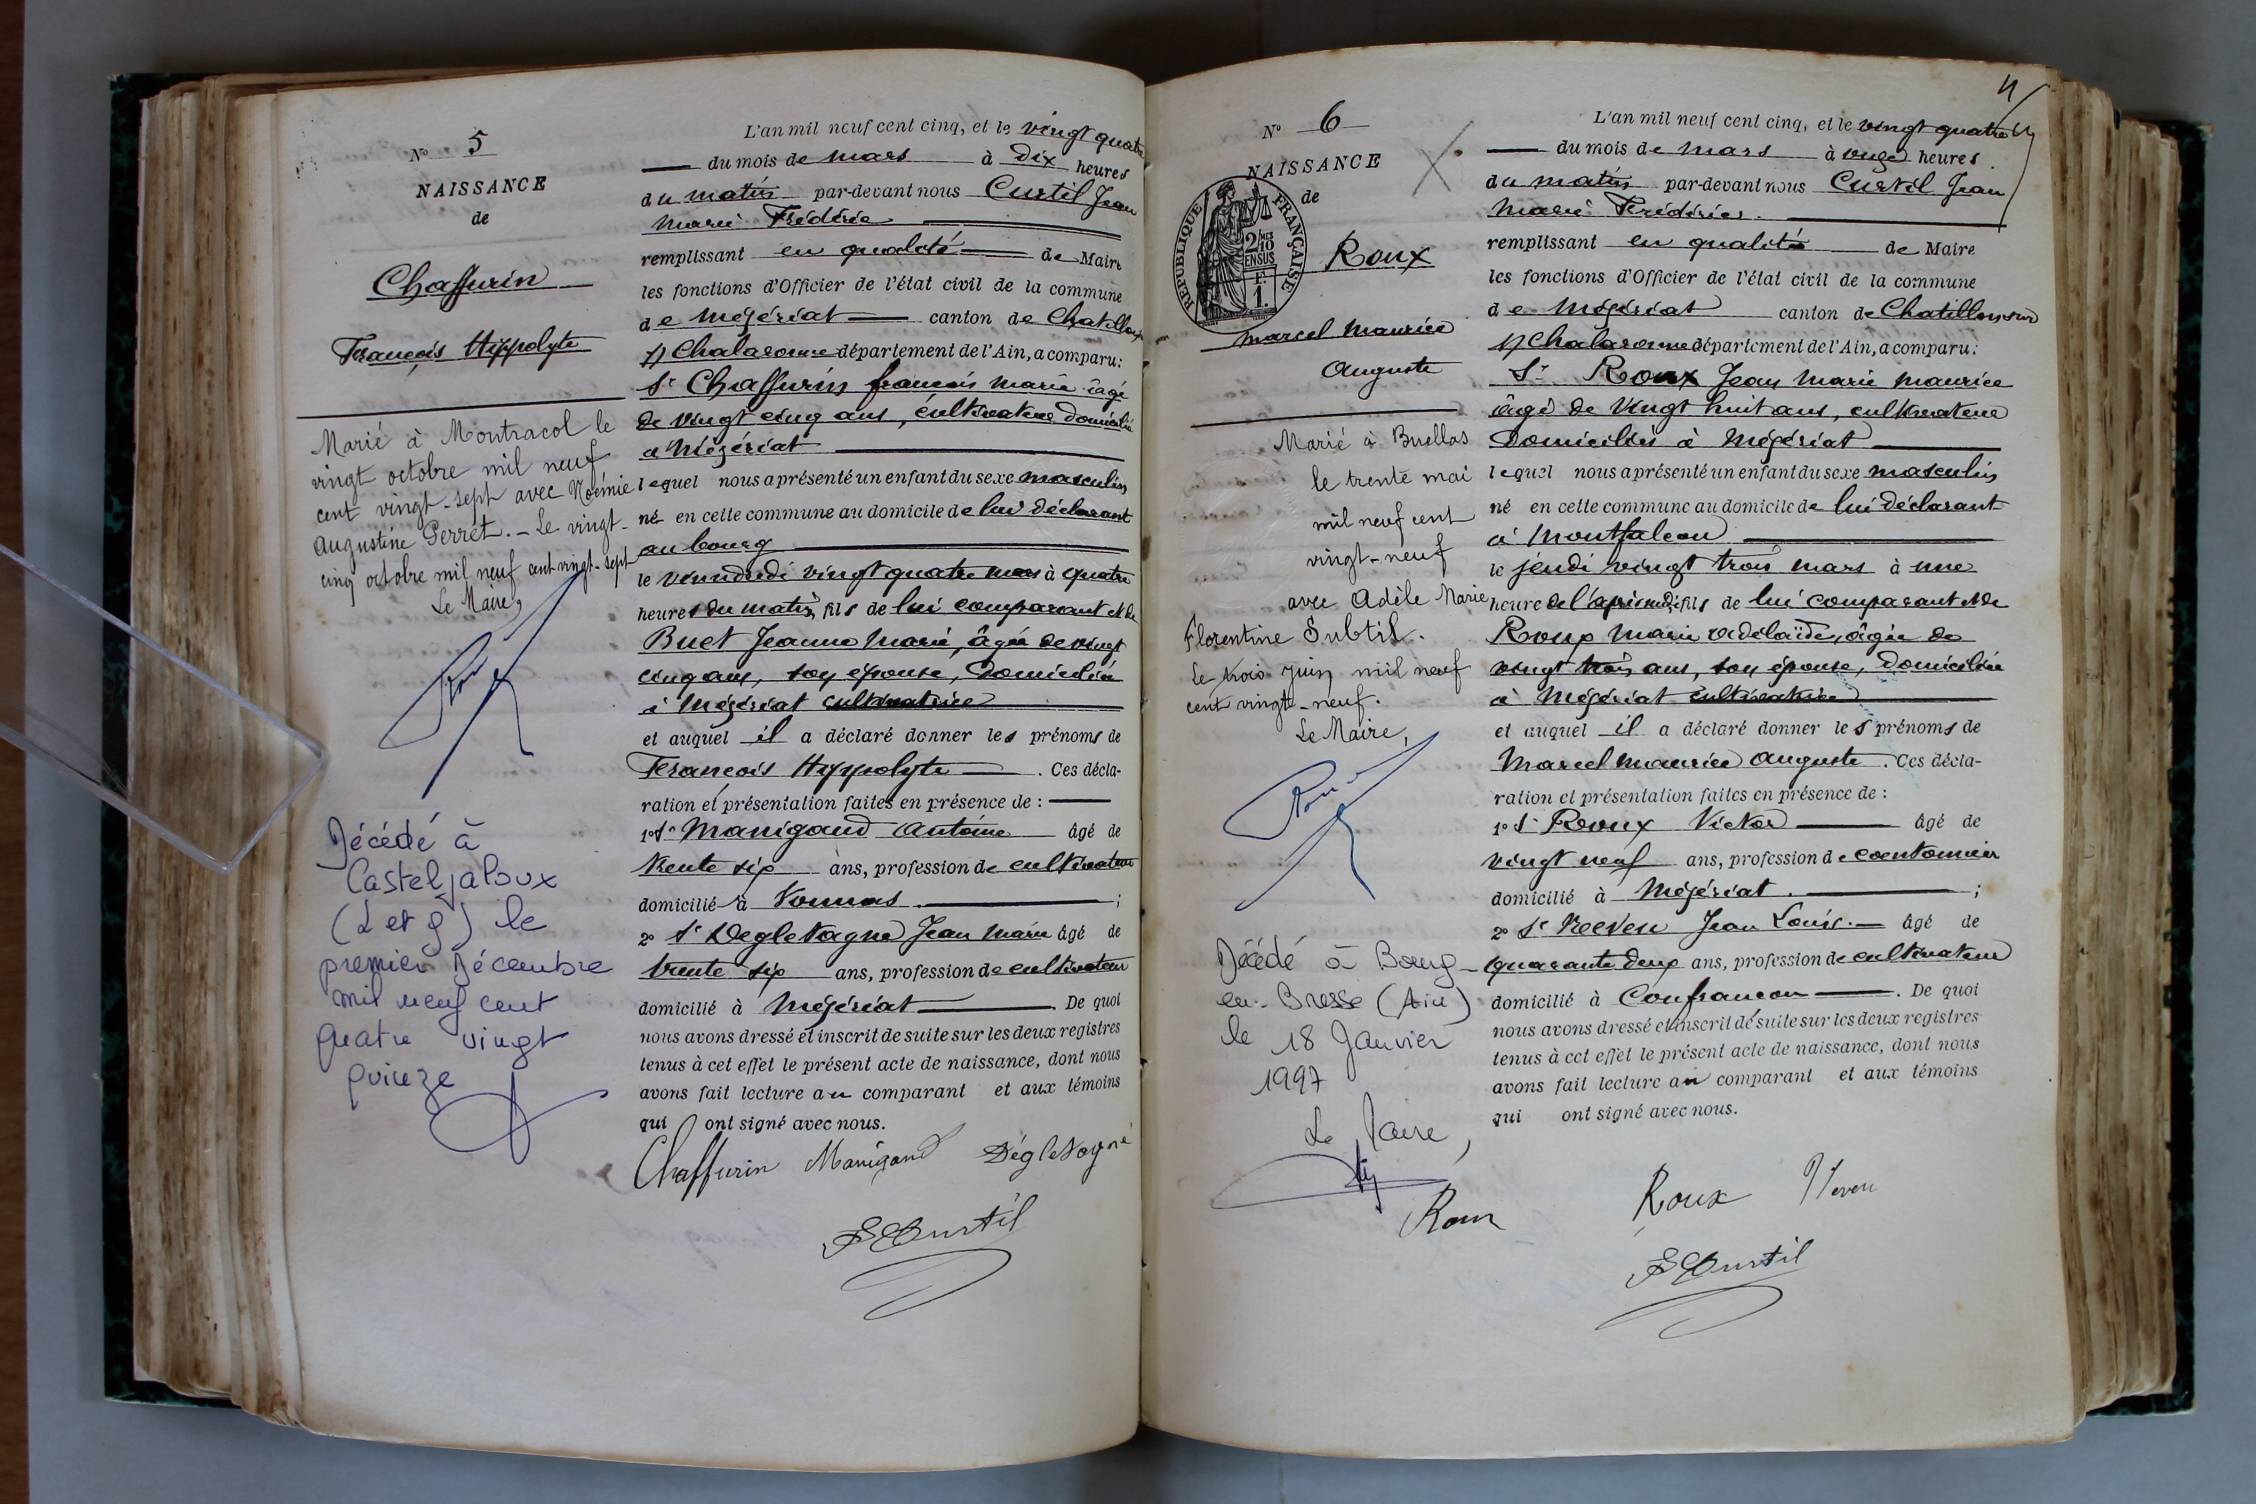 N° 5
NAISSANCE
de
Chaffurin
François Hippolyte
Marié à Montracol le
vingt octobre mil neuf
cent vingt-sept avec Noémie
Augustine Perret. - Le vingt-
cinq octobre mil neuf cent vingt-sept
Le Maire,
Décédé à
Casteljaloux
(L et g) le
premier Décembre
mil neuf cent
quatre vingt
quinze
L'an mil neuf cent cinq, et le vingt quatre
du mois de mars à dix heures
du matin par-devant nous Curtil Jean
Marie Frédéric
remplissant en qualité de Maire
les fonctions d'Officier de l'état civil de la commune
de Mézériat canton de Chatillon
s/ Chalaronne département de l'Ain, a comparu:
Sr Chaffurin françois Marie âgé
de vingt cinq ans, cultivateur domicilié
à Mézériat
lequel nous a présenté un enfant du sexe masculin
né en cette commune au domicile de lui déclarant
au bourg
le vendredi vingt quatre mars à quatre
heures du matin, fils de lui comparant et de
Buet Jeanne Marie, âgée de vingt
cinq ans, son épouse, domiciliée
à Mézériat cultivatrice
et auquel il a déclaré donner les prénoms de
François Hyppolyte. Ces décla-
ration et présentation faites en présence de :
1° Sr Manigand Antoine âgé de
trente six ans, profession de cultivateur
domicilié à Vonnas ;
2° Sr Degletagne Jean Marie âgé de
trente six ans, profession de cultivateur
domicilié à Mézériat. De quoi
nous avons dressé et inscrit de suite sur les deux registres
tenus à cet effet le présent acte de naissance, dont nous
avons fait lecture au comparant et aux témoins
qui ont signé avec nous.
Chaffurin Manigand Dégletagne
Curtil
4
N° 6
NAISSANCE
de
RÉPUBLIQUE FRANÇAISE
2/10 MES
EN SUS
F.
1.
Roux
Marcel Maurice
Auguste
Marié à Buellas
le trente mai
mil neuf cent
vingt-neuf
avec Adèle Marie
Florentine Subtil.
Le trois juin mil neuf
cent vingt-neuf.
Le Maire,
Décédé à Bourg-
en-Bresse (Ain)
le 18 Janvier
1997
Le Maire,
L'an mil neuf cent cinq, et le vingt quatre
du mois de mars à onze heures
du matin par-devant nous Curtil Jean
Marie Frédéric.
remplissant en qualité de Maire
les fonctions d'Officier de l'état civil de la commune
de Mézériat canton de Chatillon sur
s/ Chalaronne département de l'Ain, a comparu:
Sr Roux Jean Marie Maurice
âgé de vingt huit ans, cultivateur
domicilié à Mézériat
lequel nous a présenté un enfant du sexe masculin
né en cette commune au domicile de lui déclarant
à Montfalcon
le jeudi vingt trois mars à une
heure de l'après midi, fils de lui comparant et de
Roux Marie Adélaïde, âgée de
vingt trois ans, son épouse, domiciliée
à Mézériat cultivatrice
et auquel il a déclaré donner les prénoms de
Marcel Maurice Auguste. Ces décla-
ration et présentation faites en présence de :
1° Sr Roux Victor âgé de
vingt neuf ans, profession de cantonnier
domicilié à Mézériat. ;
2° Sr Neveu Jean Louis. âgé de
quarante deux ans, profession de cultivateur
domicilié à Confrançon. De quoi
nous avons dressé et inscrit de suite sur les deux registres
tenus à cet effet le présent acte de naissance, dont nous
avons fait lecture au comparant et aux témoins
qui ont signé avec nous.
Roux Roux Neveu
Curtil